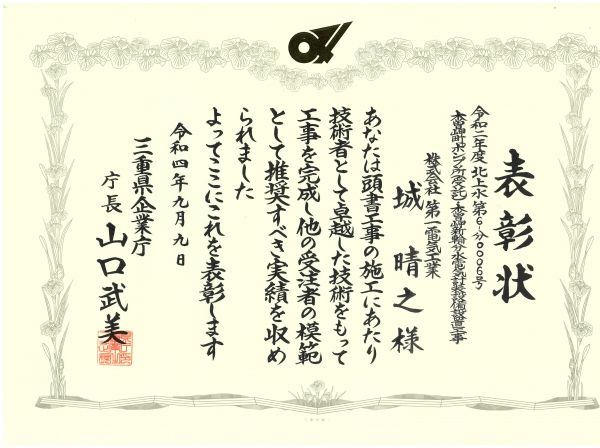 表彰状
令和二年度 北上水 第6-分0006号
木曽岬町ポンプ所(受託)・木曽岬新輪分水電気計装設備設置工事
株式会社 第一電気工業
城 晴之 様
あなたは頭書工事の施工にあたり
技術者として卓越した技術をもって
工事を完成し他の受注者の模範
として推奨すべき実績を収め
られました
よってここにこれを表彰します
令和四年九月九日
三重県企業庁
庁長 山口武美